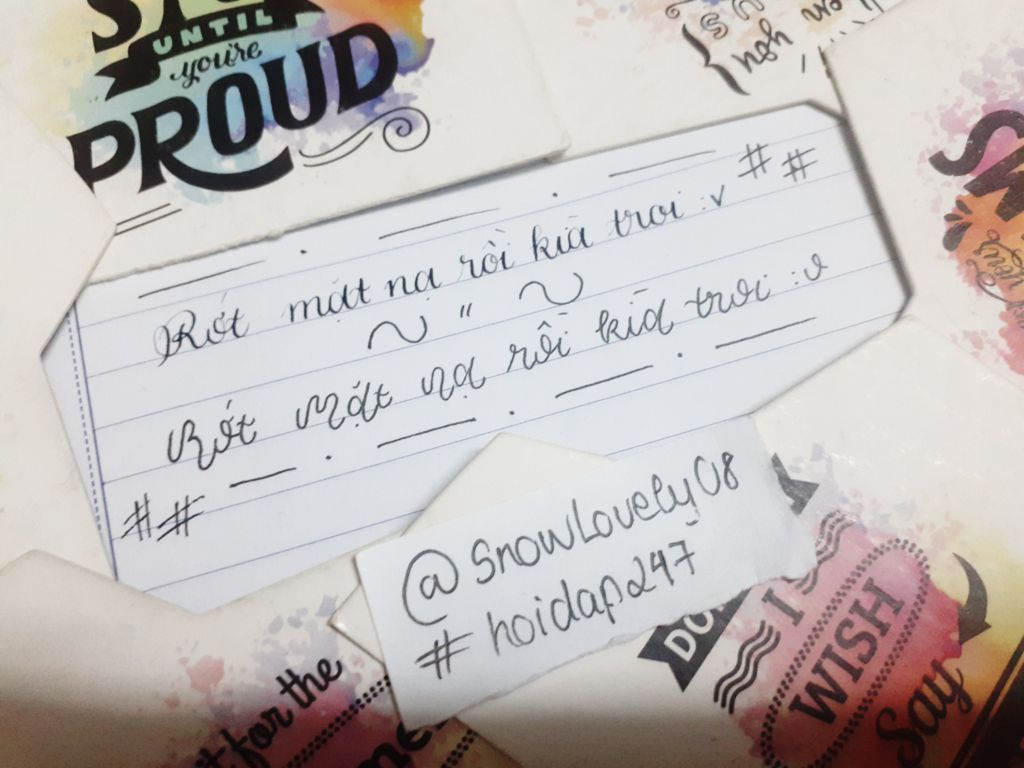 UNTIL
you're
PROUD
##
Rớt mặt nạ rồi kìa trơi :v
~ " ~
Rớt mặt nạ rồi kìa trơi :v
##
@SnowLovely08
#hoidap247
I
WISH
Say
for the